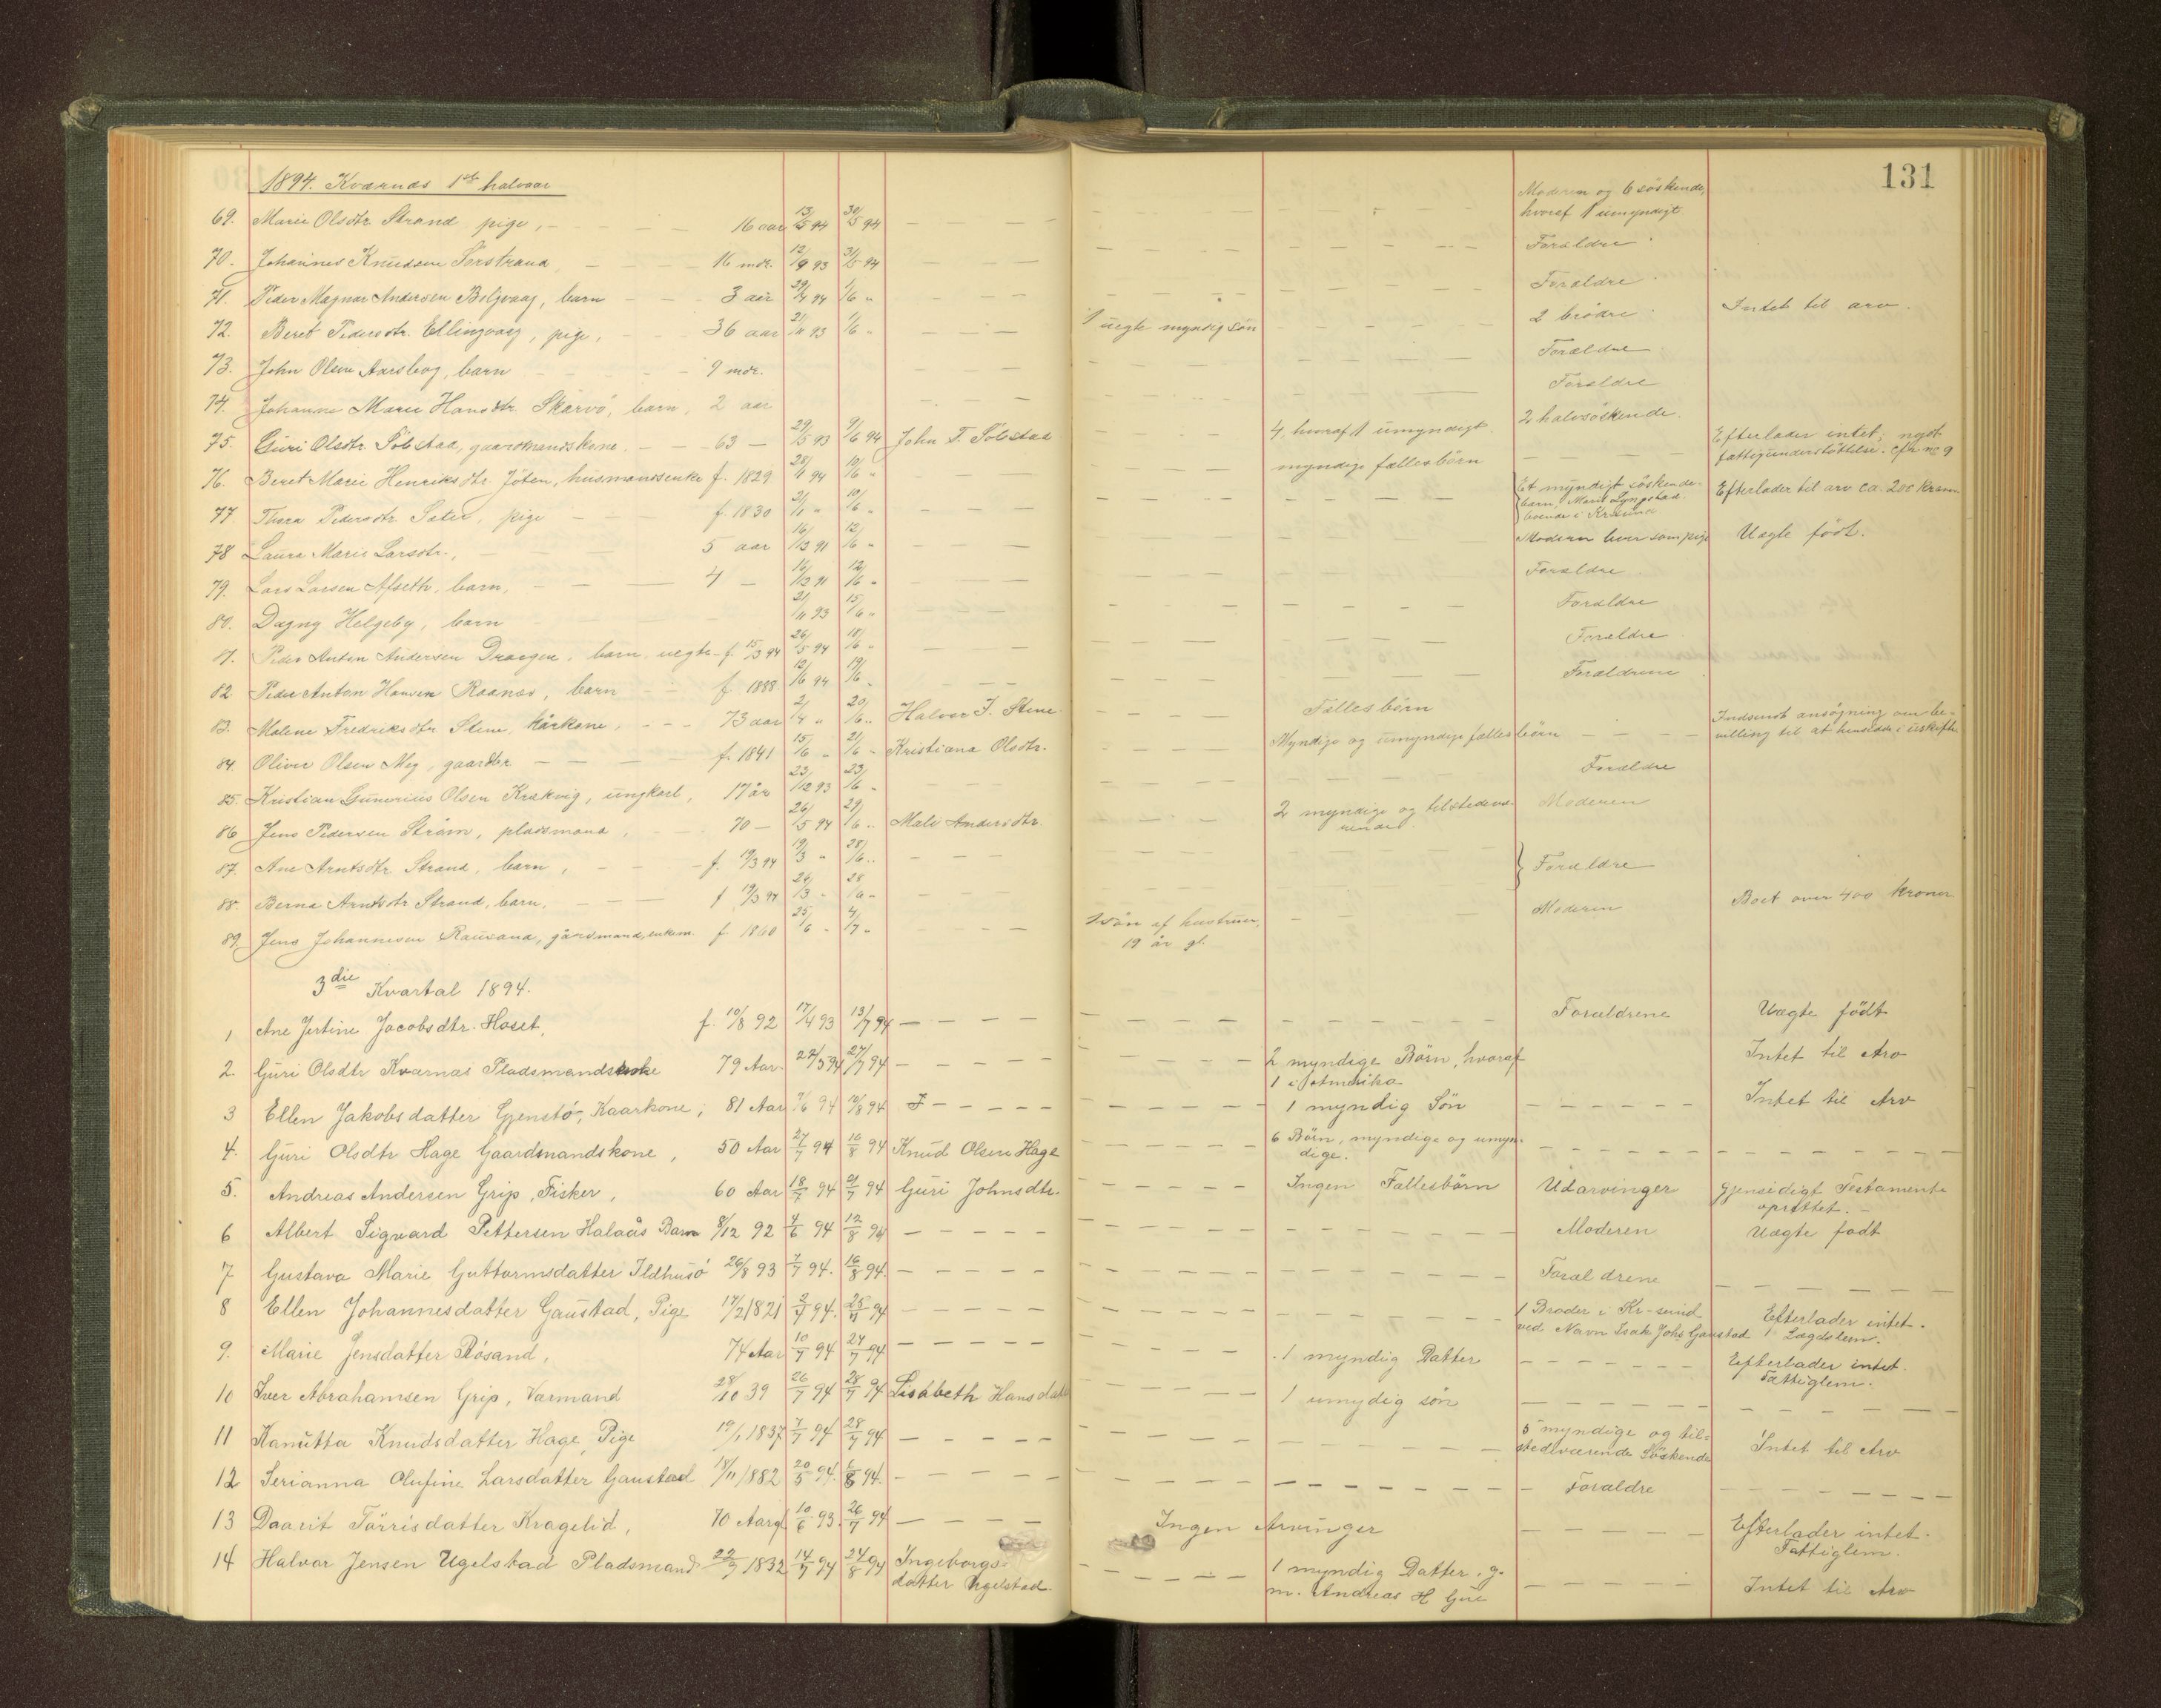 131
1894. Kværnæs 1ste halvaar
69. Marie Olsdtr Strand pige, 16 aar 13/5 94 30/5 94 Moderen og 6 söskende, hvoraf 1 umyndigt
70. Johannes Knudsen Sörstrand 16 mdr. 12/9 93 31/5 94 Forældre
71. Peder Magnar Andersen Boljevaag, barn 3 aar 29/4 94 1/6 " Forældre
72. Beret Pedersdtr. Ellingvaag, pige, 36 aar 21/11 93 1/6 " 1 uegte myndig sön 2 brödre Intet til arv.
73. John Olsen Aarsbog, barn 9 mdr. Forældre
74. Johanne Marie Hansdtr. Skarvö, barn, 2 aar Forældre
75. Guri Olsdtr. Sölstad, gaardmandskone. 63 29/5 93 9/6 94 John T. Sölstad 4 hvoraf 1 umyndigt. 2 halvsöskende.
76. Beret Marie Henriksdtr. Jöten, husmandsenke f. 1829 28/1 94 10/6 " myndige fællesbörn Efterlader intet; nydt fattigunderstöttelse. Cfr no 9
77. Thora Pedersdtr Sæter, pige f. 1830 2/1 " 10/6 " Et myndigt söskendebarn, Marit Lyngstad boende i Kr.sund Efterlader til arv ca. 200 kroner
78 Laura Marie Larsdtr., 5 aar 16/12 91 12/6 " Moderen lever som pige Uægte födt.
79. Lars Larsen Afseth, barn, 4 16/12 91 12/6 " Forældre
80. Dagny Helgeby, barn 21/11 93 15/6 " Forældre
81. Peder Anton Andersen Draagen, barn, uegte f. 15/3 94 26/5 94 18/6 " Forældre
82 Peder Anton Hansen Raanes, barn f. 1888 12/6 94 19/6 " Forældrene
83. Malene Fredriksdtr Stene, kårkone, 73 aar 2/4 " 20/6 " Halvor J. Stene Fælles börn
84. Oliver Olsen Meg, gaardbr f. 1841 15/6 " 21/6 " Kristiana Olsdtr. Myndige og umyndige fællesbörn Indsendt ansögning om bevilling til at hensidde i uskiftet
85. Kristian Gunerius Olsen Krekvig, ungkarl, 17 år 23/12 93 23/6 " Forældre
86 Jens Pedersen Ström, pladsmand, 70 26/5 94 29/6 " Mali Andersdtr. 2 myndige og tilstedeværende. Moderen
87. Ane Arntsdtr Strand, barn, f. 19/3 94 19/3 " 28/6 " Forældre
88. Berna Arntsdtr Strand, barn, f 19/3 94 24/3 " 28/6 "
89. Jens Johannesen Rausand, gårdmand, enkem. f. 1860 25/6 " 4/7 " 1 sön af hustruen, 19 år gl. Moderen Boet over 400 kroner
3die Kvartal 1894.
1 Ane Jertine Jacobsdtr. Hoset, f. 10/8 92 17/4 93 13/7 94 Forældrene Uægte födt
2. Guri Olsdtr Kværnæs Pladsmandsenke 79 Aar 22/5 94 27/7 94 2 myndige Börn, hvoraf 1 i Amerika Intet til Arv
3 Ellen Jakobsdatter Gjenstö, Kaarkone, 81 Aar 7/6 94 10/8 94 1 myndig Sön Intet til Arv
4. Guri Olsdtr Hage Gaardmandskone, 50 Aar 27/7 94 10/8 94 Knud Olsen Hage 6 Börn, myndige og umyndige.
5. Andreas Andersen Grip, Fisker, 60 Aar 18/7 94 21/7 94 Guri Johnsdtr. Ingen Fællesbörn Udarvinger Gjensidigt Testamente oprettet.
6 Albert Sigvard Pettersen Halaås Barn 8/12 92 4/6 94 12/8 94 Moderen Uægte födt
7 Gustava Marie Guttormsdatter Ildhusö 26/8 93 7/7 94. 16/8 94. Forældrene
8 Ellen Johannesdatter Gaustad, Pige 17/2 1821 2/7 94. 25/7 94 1 Broder i Kr-sund ved Navn Isak Johs Gaustad Efterlader intet. Lægdslem.
9. Marie Jensdatter Rösand, 74 Aar 10/7 94 24/7 94 1 myndig Datter Efterlader intet. Fattiglem.
10 Iver Abrahamsen Grip, Varmand 28/10 39 26/7 94 28/7 94 Lisabeth Hansdatt 1 umydig sön
11 Kanutta Knudsdatter Hage, Pige 19/1 1837 7/7 94 28/7 94 5 myndige og tilstedværende Söskende Intet til Arv
12 Serianna Olufine Larsdatter Gaustad 18/11 1882 20/5 94. 6/8 94. Forældre
13 Daarit Törrisdatter Kragelid, 70 Aargl 10/6 93. 26/7 94 Ingen Arvinger Efterlader intet. Fattiglem.
14 Halvar Jensen Ugelstad Pladsmand 22/9 1832 14/7 94 24/8 94 Ingeborgsdatter Ugelstad. 1 myndig Datter. g. m. Andreas H Intet til Arv